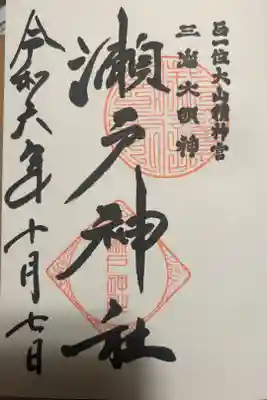 正一位大山積神宮
三島大明神
瀬戸神社
令和六年十月七日